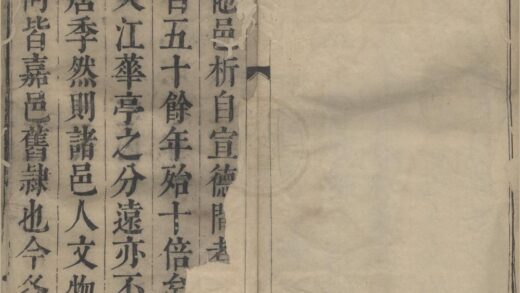 邑析自宣德間
百五十餘年殆十倍矣
江華亭之分遠亦不
居季然則諸邑人文物
皆嘉邑舊隷也今各